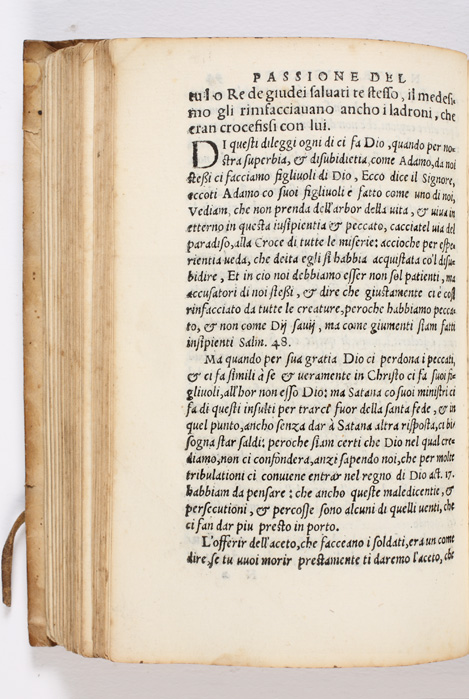 PASSIONE DEL
tu lo Re de giudei saluati te stesso, il medesi
mo gli rimfacciauano ancho i ladroni, che
eran crocefissi con lui.
DI questi dileggi ogni dì ci fa Dio, quando per no-
stra superbia, & disubidiẽtia, come Adamo, da noi
steßi ci facciamo figliuoli di Dio, Ecco dice il Signore,
eccoti Adamo co suoi figliuoli è fatto come uno di noi,
Vediam, che non prenda dell'arbor della uita, & uiua in
etterno in questa insipientia & peccato, cacciatel uia del
paradiso, alla Croce di tutte le miserie: accioche per espe
rientia ueda, che deita egli si habbia acquistata co'l disu-
bidire, Et in cio noi debbiamo esser non sol patienti, ma
accusatori di noi steßi, & dire che giustamente ci è cosi
rinfacciato da tutte le creature, peroche habbiamo pecca-
to, & non come Dij sauij, ma come giumenti siam fatti
insipienti Salm. 48.
Ma quando per sua gratia Dio ci perdona i peccati,
& ci fa simili à se & ueramente in Christo ci fa suoi fi-
gliuoli, all'hor non esso Dio: ma Satana co suoi ministri ci
fa di questi insulti per trarci fuor della santa fede, & in
quel punto, ancho senza dar à Satana altra risposta, ci bi
sogna star saldi: peroche siam certi che Dio nel qual cre-
diamo, non ci confonderà, anzi sapendo noi, che per molte
tribulationi ci conuiene entrar nel regno di Dio act. 17.
habbiam da pensare: che ancho queste maledicentie, &
persecutioni, & percosse sono alcuni di quelli uenti, che
ci fan dar piu presto in porto.
L'offerir dell'aceto, che facceano i soldati, era un come
dire, se tu uuoi morir prestamente ti daremo l'aceto, che